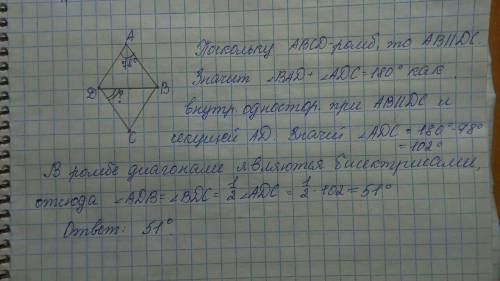 A
78°
D
?
B
C
Поскольку ABCD-ромб, то AB||DC.
Значит ∠BAD + ∠ADC = 180° как
внутр. одностор. при AB||DC и
секущей AD. Значит ∠ADC = 180°-78°
= 102°
В ромбе диагонали являются бисектрисами,
отсюда ∠ADB = ∠BDC = 1/2 ∠ADC = 1/2 · 102 = 51°
Ответ: 51°